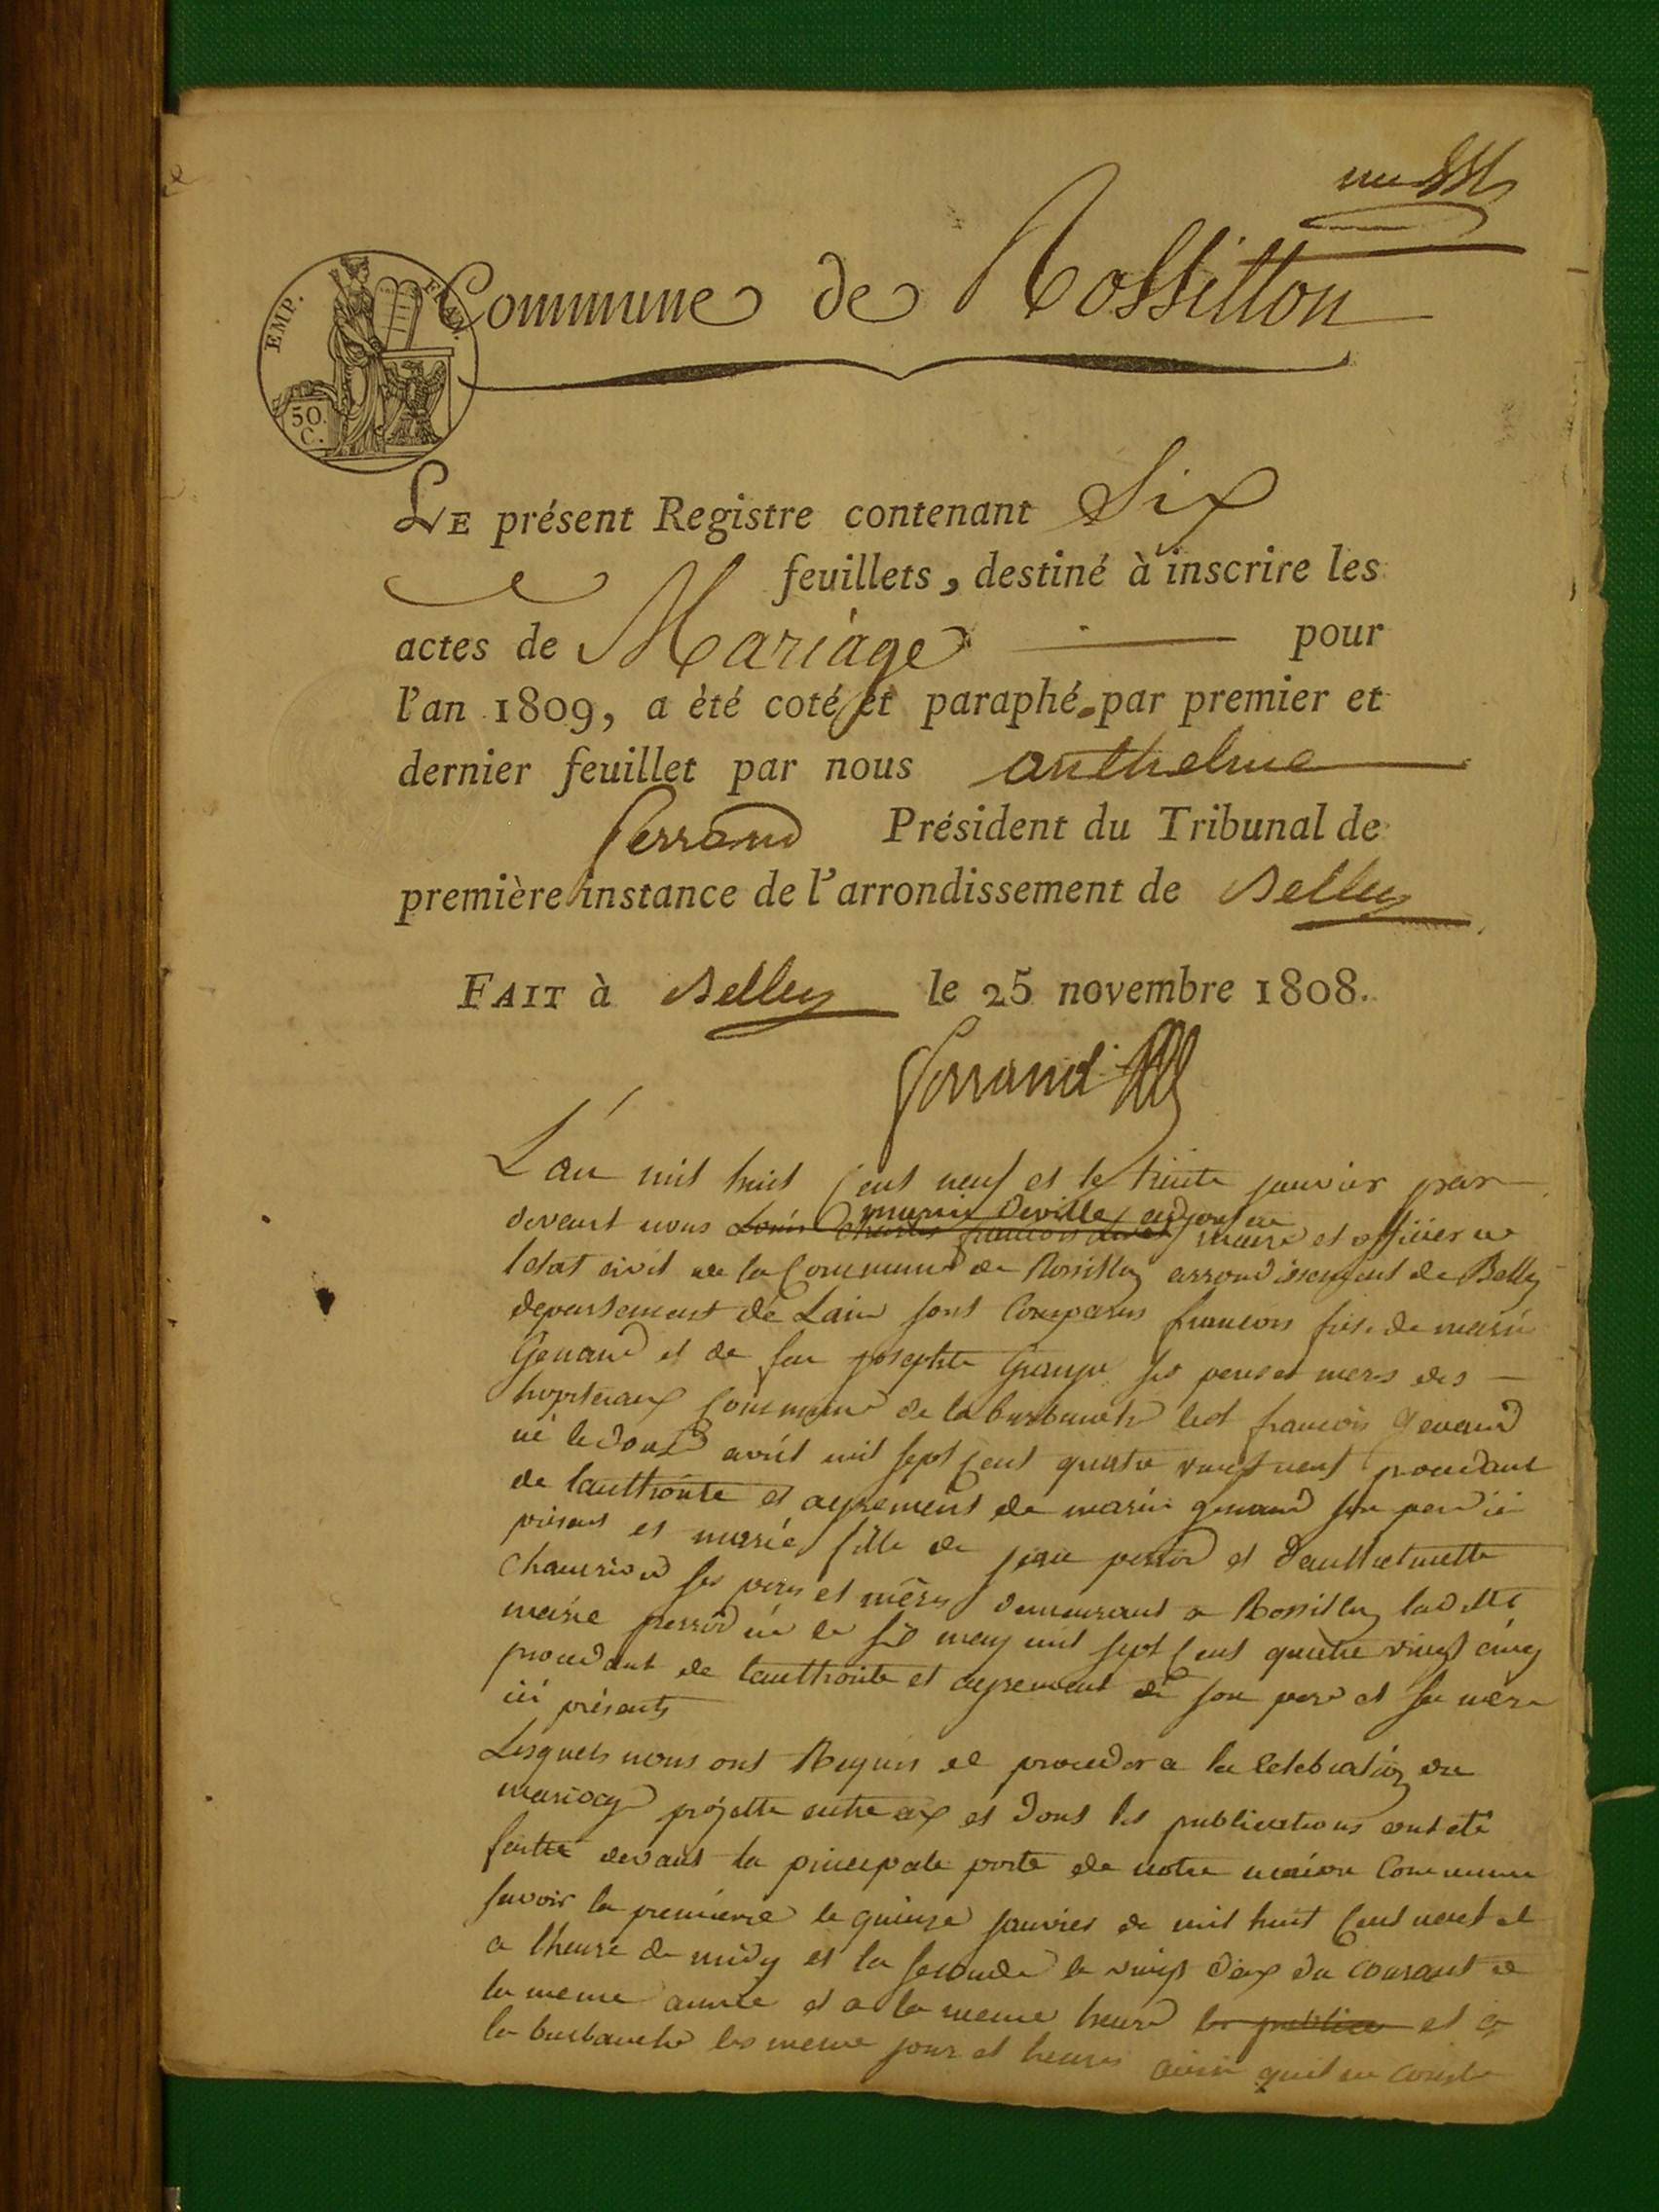 EMP. FRAN.
50. C.
Commune de Rossillon
LE présent Registre contenant Six
feuillets, destiné à inscrire les
actes de Mariage pour
l'an 1809, a èté coté et paraphé par premier et
dernier feuillet par nous anthelme
ferrand Président du Tribunal de
première instance de l'arrondissement de Belley
FAIT à Belley le 25 novembre 1808.
ferrand
L'an mil huit Cent neuf et le trente janvier par
devant nous Louis Charles francois marin Deville adjoint au maire et officier de
letat civil de la Commune de Rossillon arrondissement de Belley
departement de Lain sont Comparus francois fils de marin
Genand et de feu josephte Grange ses peres et meres des
hopiteaux Commune de la burbanche led francois Genand
né le douze avril mil sept Cent quatre vingt neuf procedant
de lauthorite et agrement de marin genand son pere ici
présent et marie fille de jean perrod et danthelmette
ses peres et mères demeurant a Rossillon laditte
marie perrod né le six may mil sept Cent quatre vingt cinq
procedant de lauthorite et agrement de son pere et sa mère
ici présents
Lesquels nous ont Requis de proceder a la Celebration du
mariage projette entre eux et dont les publications ont eté
faitte devant la principale porte de notre maison Commune
savoir la premiere le quinze janvier de mil huit Cent neuf et
a lheure de midy et la seconde le vingt deux du courant de
la meme année et a la meme heure les publica et a
la burbanche les meme jour et heures ainsi quil en conste